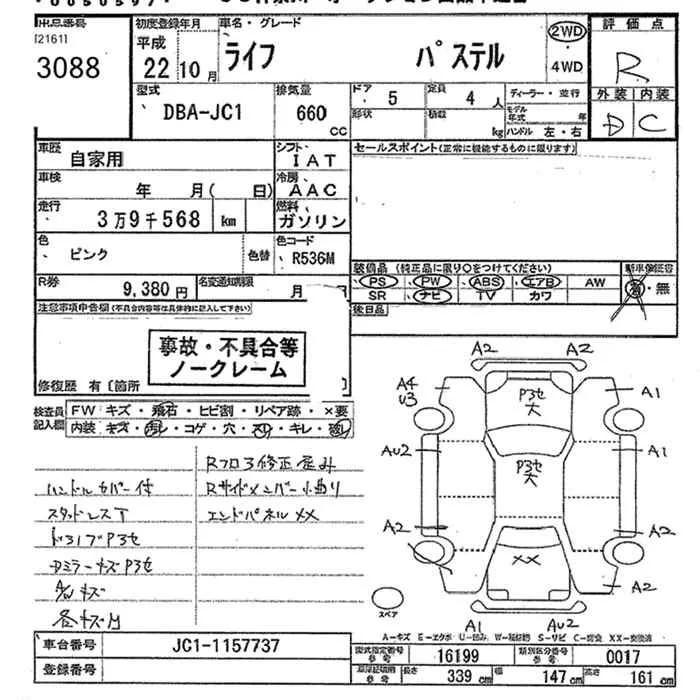 [2161]
3088
初度登録年月
平成
22 10 月
車名・グレード
ライフ パステル
2WD
・
4WD
評価点
R
外装 内装
D C
型式
DBA-JC1
排気量
660
CC
ドア
5
定員
4 人
形状
積載
kg
ディーラー・並行
モデル年式 年
ハンドル 左・右
車歴
自家用
シフト
IAT
セールスポイント(正常に機能するものに限ります)
車検
年 月( 日)
冷房
AAC
走行
3万9千568 km
燃料
ガソリン
色
ピンク
色替
色コード
R536M
装備品 (純正品に限り〇をつけてください)
新車保証書
PS PW ABS エアB AW
SR ナビ TV カワ
有・無
R券
9,380円
名変通知期限
月
後日品
注意事項申告欄(不具合内容等は具体的に記入して下さい)
事故・不具合等
ノークレーム
修復歴 有〔箇所
検査員
記入欄
FW キズ・飛石・ヒビ割・リペア跡・×要
内装
コゲ・穴・スレ・キレ
Rフロア修正歪み
ハンドルカバー付
Rサイドメンバー小曲り
スタッドレスT
エンドパネルXX
キズ
A2
A4
U3
P3セ
大
A1
AU2
P3セ
大
A1
A2
XX
A2
A2
スペア
A1
AU2
A2
A-キズ E-エクボ U-凹み S-サビ XX-交換済
車台番号
JC1-1157737
登録番号
型式指定番号
参考
16199
類別区分番号
参考
0017
参考
長さ
339 cm
幅
147 cm
高さ
161 cm